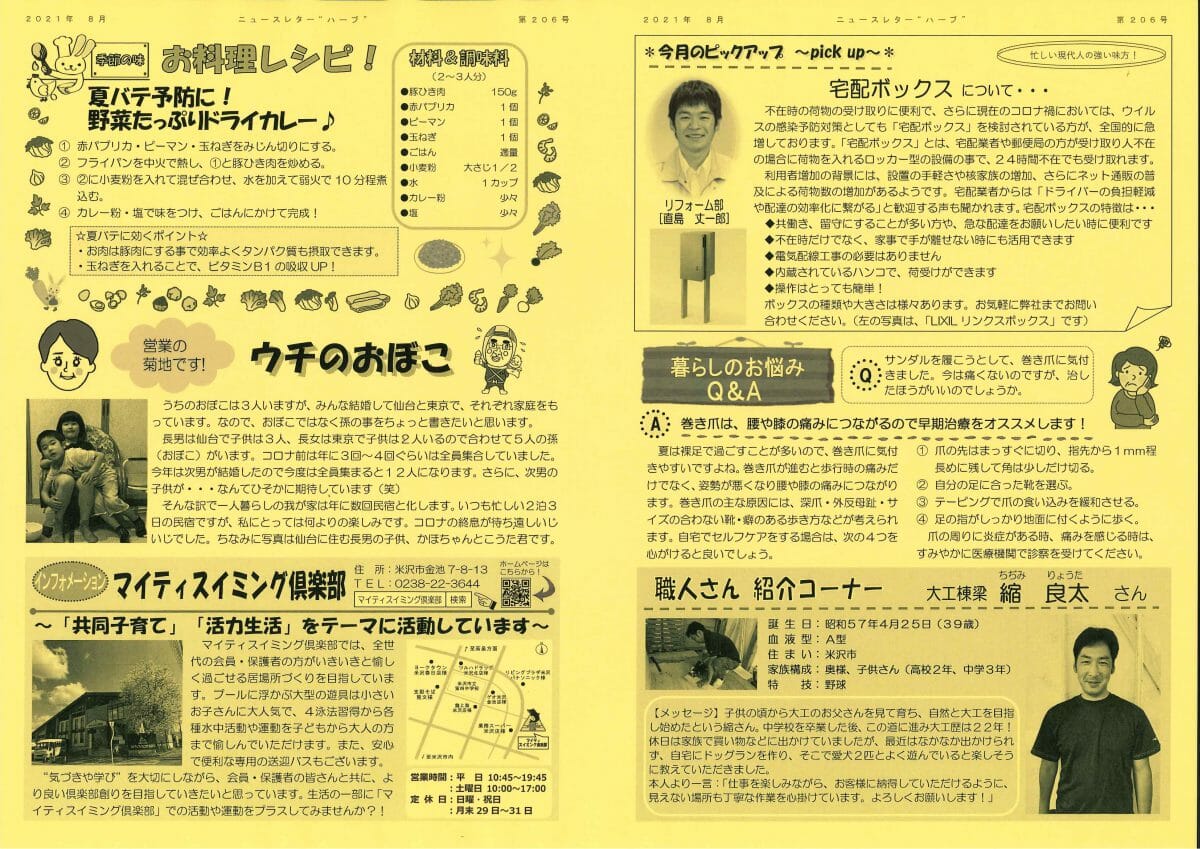 2021年 8月 ニュースレター“ハーブ” 第206号
季節の味 お料理レシピ！
夏バテ予防に！
野菜たっぷりドライカレー♪
① 赤パプリカ・ピーマン・玉ねぎをみじん切りにする。
② フライパンを中火で熱し、①と豚ひき肉を炒める。
③ ②に小麦粉を入れて混ぜ合わせ、水を加えて弱火で10分程煮
込む。
④ カレー粉・塩で味をつけ、ごはんにかけて完成！
☆夏バテに効くポイント☆
・お肉は豚肉にする事で効率よくタンパク質も摂取できます。
・玉ねぎを入れることで、ビタミンB1の吸収UP！
材料＆調味料
（2～3人分）
●豚ひき肉 150g
●赤パプリカ 1個
●ピーマン 1個
●玉ねぎ 1個
●ごはん 適量
●小麦粉 大さじ1／2
●水 1カップ
●カレー粉 少々
●塩 少々
営業の
菊地です!
ウチのおぼこ
うちのおぼこは3人いますが、みんな結婚して仙台と東京で、それぞれ家庭をも
っています。なので、おぼこではなく孫の事をちょっと書きたいと思います。
長男は仙台で子供は3人、長女は東京で子供は2人いるので合わせて5人の孫
（おぼこ）がいます。コロナ前は年に3回～4回ぐらいは全員集合していました。
今年は次男が結婚したので今度は全員集まると12人になります。さらに、次男の
子供が・・・なんてひそかに期待しています（笑）
そんな訳で一人暮らしの我が家は年に数回民宿と化します。いつも忙しい2泊3
日の民宿ですが、私にとっては何よりの楽しみです。コロナの終息が待ち遠しいじ
いじでした。ちなみに写真は仙台に住む長男の子供、かほちゃんとこうた君です。
インフォメーション マイティスイミング倶楽部
住 所：米沢市金池7-8-13
TEL：0238-22-3644
マイティスイミング倶楽部 検索
ホームページは
こちらから！
～「共同子育て」「活力生活」をテーマに活動しています～
マイティスイミング倶楽部では、全世
代の会員・保護者の方がいきいきと愉し
く過ごせる居場所づくりを目指していま
す。プールに浮かぶ大型の遊具は小さい
お子さんに大人気で、4泳法習得から各
種水中活動や運動を子どもから大人の方
まで愉しんでいただけます。また、安心
で便利な専用の送迎バスもございます。
“気づきや学び”を大切にしながら、会員・保護者の皆さんと共に、よ
り良い倶楽部創りを目指していきたいと思っています。生活の一部に「マ
イティスイミング倶楽部」での活動や運動をプラスしてみませんか？！
営業時間：平 日 10:45～19:45
：土曜日 10:00～17:00
定 休 日：日曜・祝日
：月末29日～31日
2021年 8月 ニュースレター“ハーブ” 第206号
＊今月のピックアップ ～pick up～＊
忙しい現代人の強い味方！
リフォーム部
[直島 丈一郎]
宅配ボックス について・・・
不在時の荷物の受け取りに便利で、さらに現在のコロナ禍においては、ウイル
スの感染予防対策としても「宅配ボックス」を検討されている方が、全国的に急
増しております。「宅配ボックス」とは、宅配業者や郵便局の方が受け取り人不在
の場合に荷物を入れるロッカー型の設備の事で、24時間不在でも受け取れます。
利用者増加の背景には、設置の手軽さや核家族の増加、さらにネット通販の普
及による荷物数の増加があるようです。宅配業者からは「ドライバーの負担軽減
や配達の効率化に繋がる」と歓迎する声も聞かれます。宅配ボックスの特徴は・・・
◆共働き、留守にすることが多い方や、急な配達をお願いしたい時に便利です
◆不在時だけでなく、家事で手が離せない時にも活用できます
◆電気配線工事の必要はありません
◆内蔵されているハンコで、荷受けができます
◆操作はとっても簡単！
ボックスの種類や大きさは様々あります。お気軽に弊社までお問い
合わせください。（左の写真は、「LIXIL リンクスボックス」です）
暮らしのお悩み
Q&A
Q サンダルを履こうとして、巻き爪に気付
きました。今は痛くないのですが、治し
たほうがいいのでしょうか。
A 巻き爪は、腰や膝の痛みにつながるので早期治療をオススメします！
夏は裸足で過ごすことが多いので、巻き爪に気付
きやすいですよね。巻き爪が進むと歩行時の痛みだ
けでなく、姿勢が悪くなり腰や膝の痛みにつながり
ます。巻き爪の主な原因には、深爪・外反母趾・サ
イズの合わない靴・癖のある歩き方などが考えられ
ます。自宅でセルフケアをする場合は、次の4つを
心がけると良いでしょう。
① 爪の先はまっすぐに切り、指先から1mm程
長めに残して角は少しだけ切る。
② 自分の足に合った靴を選ぶ。
③ テーピングで爪の食い込みを緩和させる。
④ 足の指がしっかり地面に付くように歩く。
爪の周りに炎症がある時、痛みを感じる時は、
すみやかに医療機関で診察を受けてください。
職人さん 紹介コーナー
ちぢみ りょうた
大工棟梁 縮 良太 さん
誕 生 日：昭和57年4月25日（39歳）
血 液 型：A型
住 ま い：米沢市
家族構成：奥様、子供さん（高校2年、中学3年）
特 技：野球
【メッセージ】子供の頃から大工のお父さんを見て育ち、自然と大工を目指
し始めたという縮さん。中学校を卒業した後、この道に進み大工歴は22年！
休日は家族で買い物などに出かけていましたが、最近はなかなか出かけられ
ず、自宅にドッグランを作り、そこで愛犬2匹とよく遊んでいると楽しそう
に教えていただきました。
本人より一言：「仕事を楽しみながら、お客様に納得していただけるように、
見えない場所も丁寧な作業を心掛けています。よろしくお願いします！」